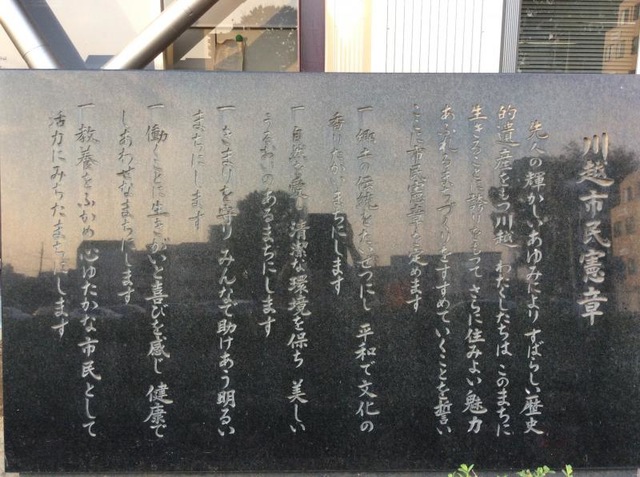 川越市民憲章
先人の輝かしいあゆみによりすばらしい歴史
的遺産をもつ川越 わたくしたちは このまちに
生きることに誇りをもって さらに住みよい魅力
あふれるまちづくりをすすめていくことを誓い
ここに市民憲章を定めます
一 郷土の伝統をたいせつにし 平和で文化の
香りたかいまちにします
一 自然を愛し 清潔な環境を保ち 美しい
うるおいのあるまちにします
一 きまりを守り みんなで助けあう明るい
まちにします
一 働くことに生きがいと喜びを感じ 健康で
しあわせなまちにします
一 教養をふかめ 心ゆたかな市民として
活力にみちたまちにします